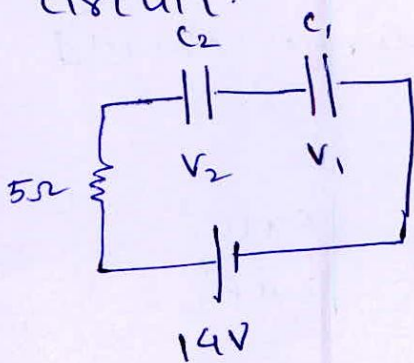 circuit.
C2 C1
V2 V1
5Ω
14V